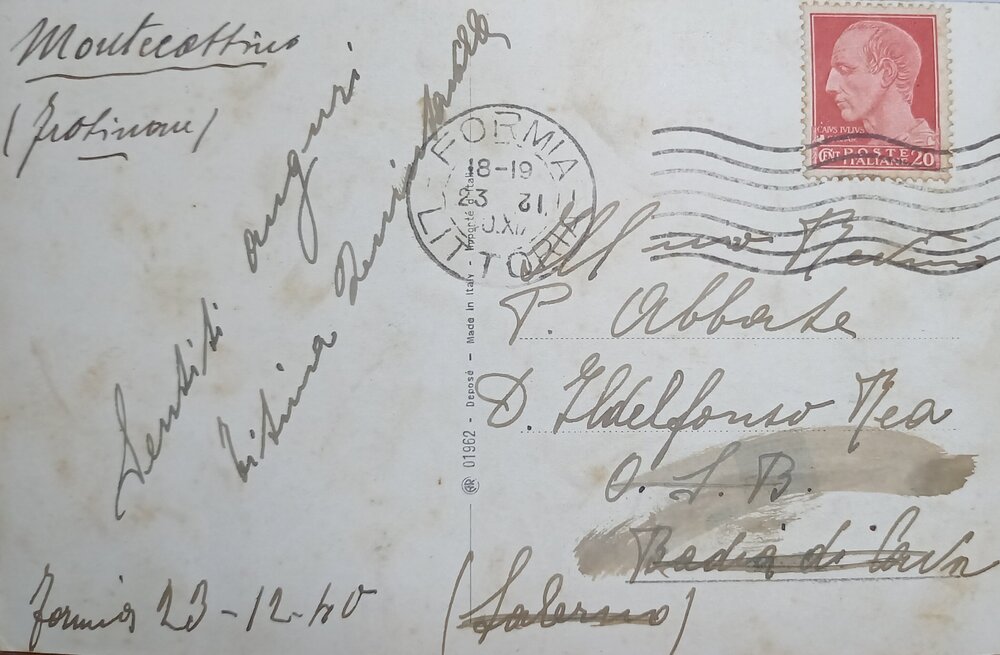 Montecassino
(Frosinone)
Sentiti auguri
Titina
Formia 23-12-40
FORMIA
18-19
23 12
40.XIX
LITTORIA
CAIVS IVLIVS
CAESAR
CENT POSTE ITALIANE 20
AR 01962 - Deposé - Made in Italy - Importé d'Italie
All' mo Rev.mo
P. Abbate
D. Ildelfonso Rea
O. S. B.
Badia di Cava
(Salerno)